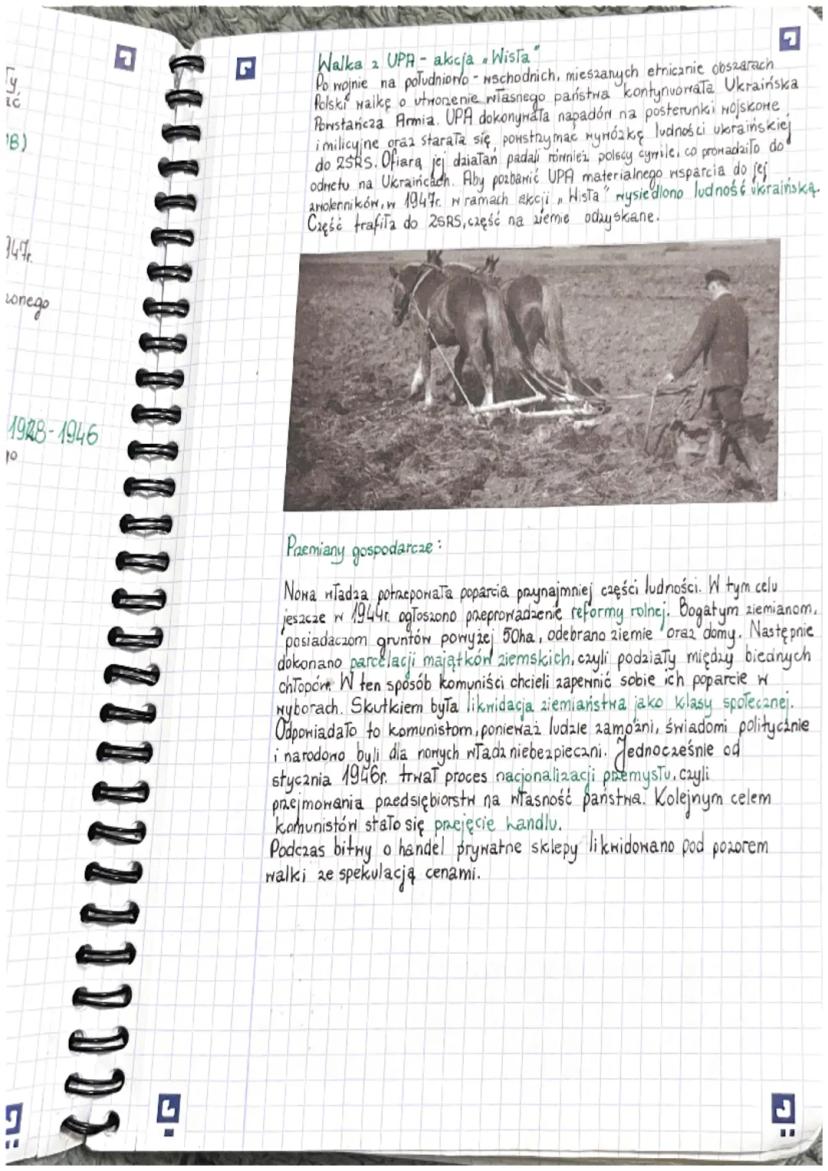 B)
947r.
zonego
1928-1946
go
Walka z UPA - akcja „Wisła"
Po wojnie na południowo - wschodnich, mieszanych etnicznie obszarach
Polski walkę o utworzenie własnego państwa kontynuowała Ukraińska
Powstańcza Armia. UPA dokonywała napadów na posterunki wojskowe
i milicyjne oraz starała się powstrzymać wywózkę ludności ukraińskiej
do ZSRS. Ofiarą jej działań padali również polscy cywile, co prowadziło do
odwetu na Ukraińcach. Aby pozbawić UPA materialnego wsparcia do jej
zwolenników, w 1947r. w ramach akcji „Wisła" wysiedlono ludność ukraińską.
Część trafiła do ZSRS, część na ziemie odzyskane.
Przemiany gospodarcze:
Nowa władza potrzepowała poparcia przynajmniej części ludności. W tym celu
jeszcze w 1944r. ogłoszono przeprowadzenie reformy rolnej. Bogatym ziemianom,
posiadaczom gruntów powyżej 50ha, odebrano ziemie oraz domy. Następnie
dokonano parcelacji majątków ziemskich, czyli podziały między biednych
chłopów. W ten sposób komuniści chcieli zapewnić sobie ich poparcie w
wyborach. Skutkiem była likwidacja ziemiaństwa jako klasy społecznej.
Odpowiadało to komunistom, ponieważ ludzie zamożni, świadomi politycznie
i narodowo byli dla nowych władz niebezpieczni. Jednocześnie od
stycznia 1946r. trwał proces nacjonalizacji przemysłu, czyli
przejmowania przedsiębiorstw na własność państwa. Kolejnym celem
komunistów stało się przejęcie handlu.
Podczas bitwy o handel prywatne sklepy likwidowano pod pozorem
walki ze spekulacją cenami.